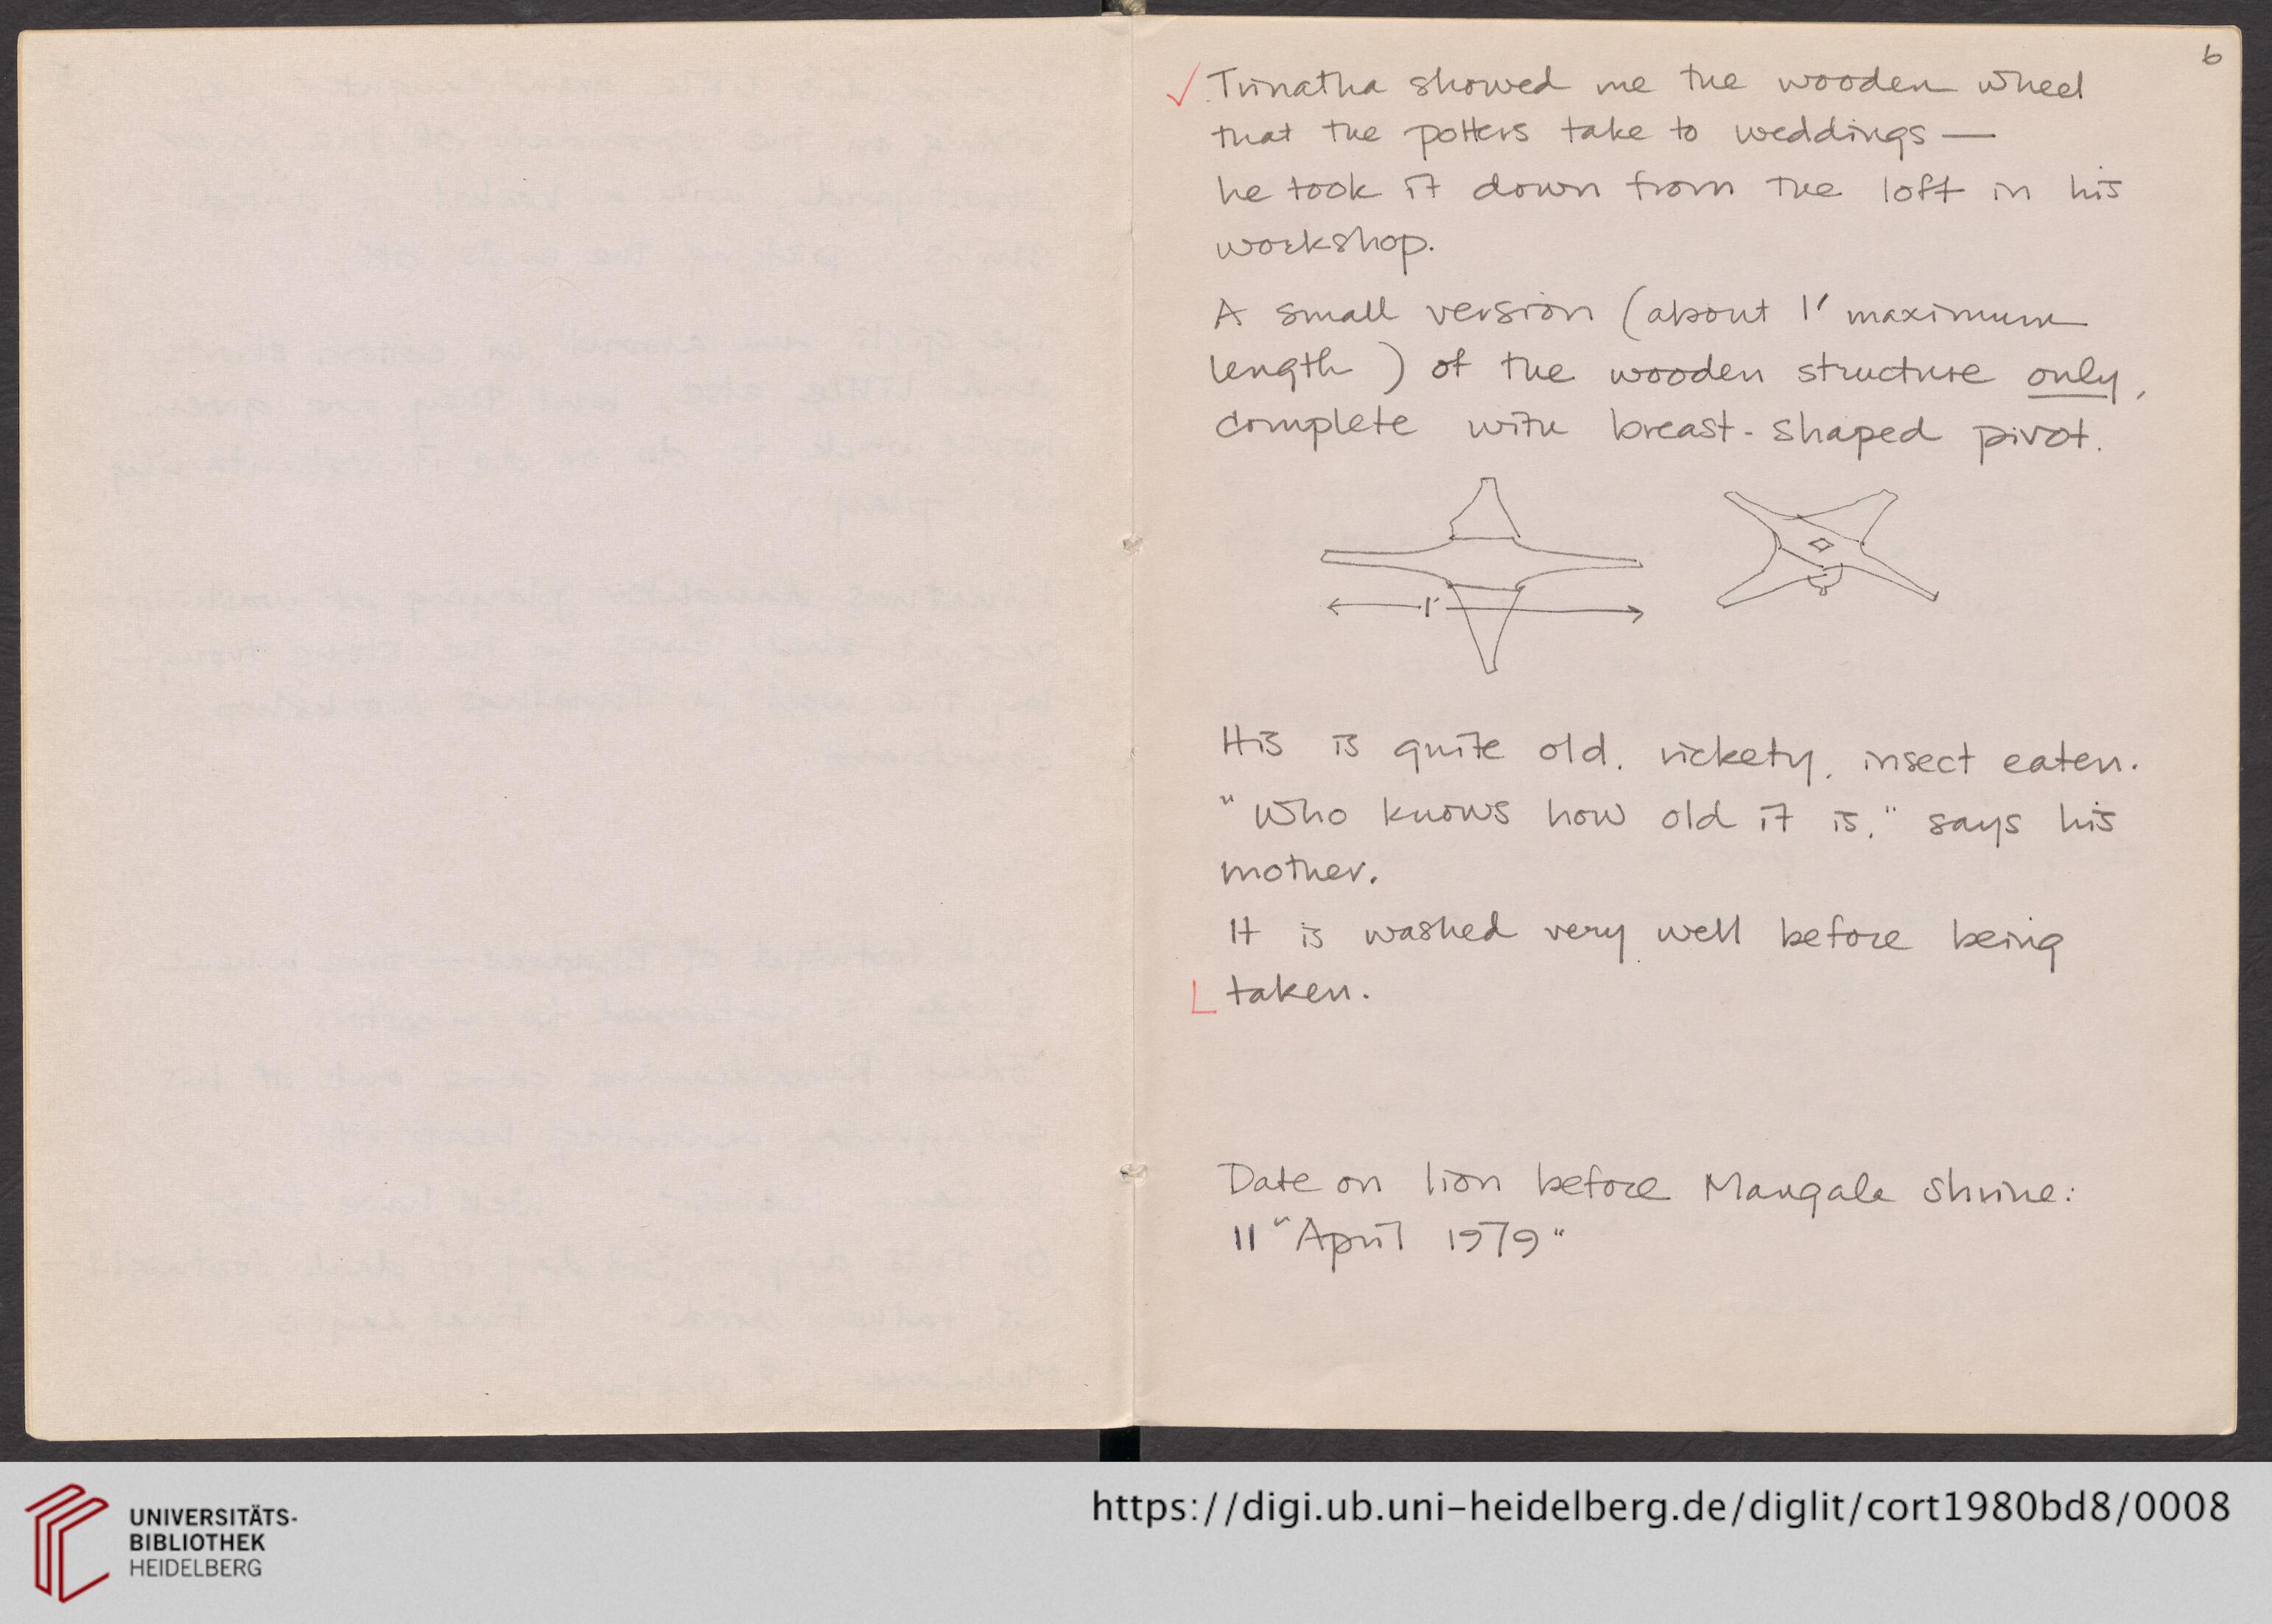 6
Trinatha showed me the wooden wheel
that the potters take to weddings —
he took it down from the loft in his
workshop.
A small version (about 1' maximum
length) of the wooden structure only,
complete with breast-shaped pivot.
1'
His is quite old, rickety, insect eaten.
"Who knows how old it is," says his
mother.
It is washed very well before being
taken.
Date on lion before Mangala shrine:
11 "April 1979"
UNIVERSITÄTS-
BIBLIOTHEK
HEIDELBERG
https://digi.ub.uni-heidelberg.de/diglit/cort1980bd8/0008